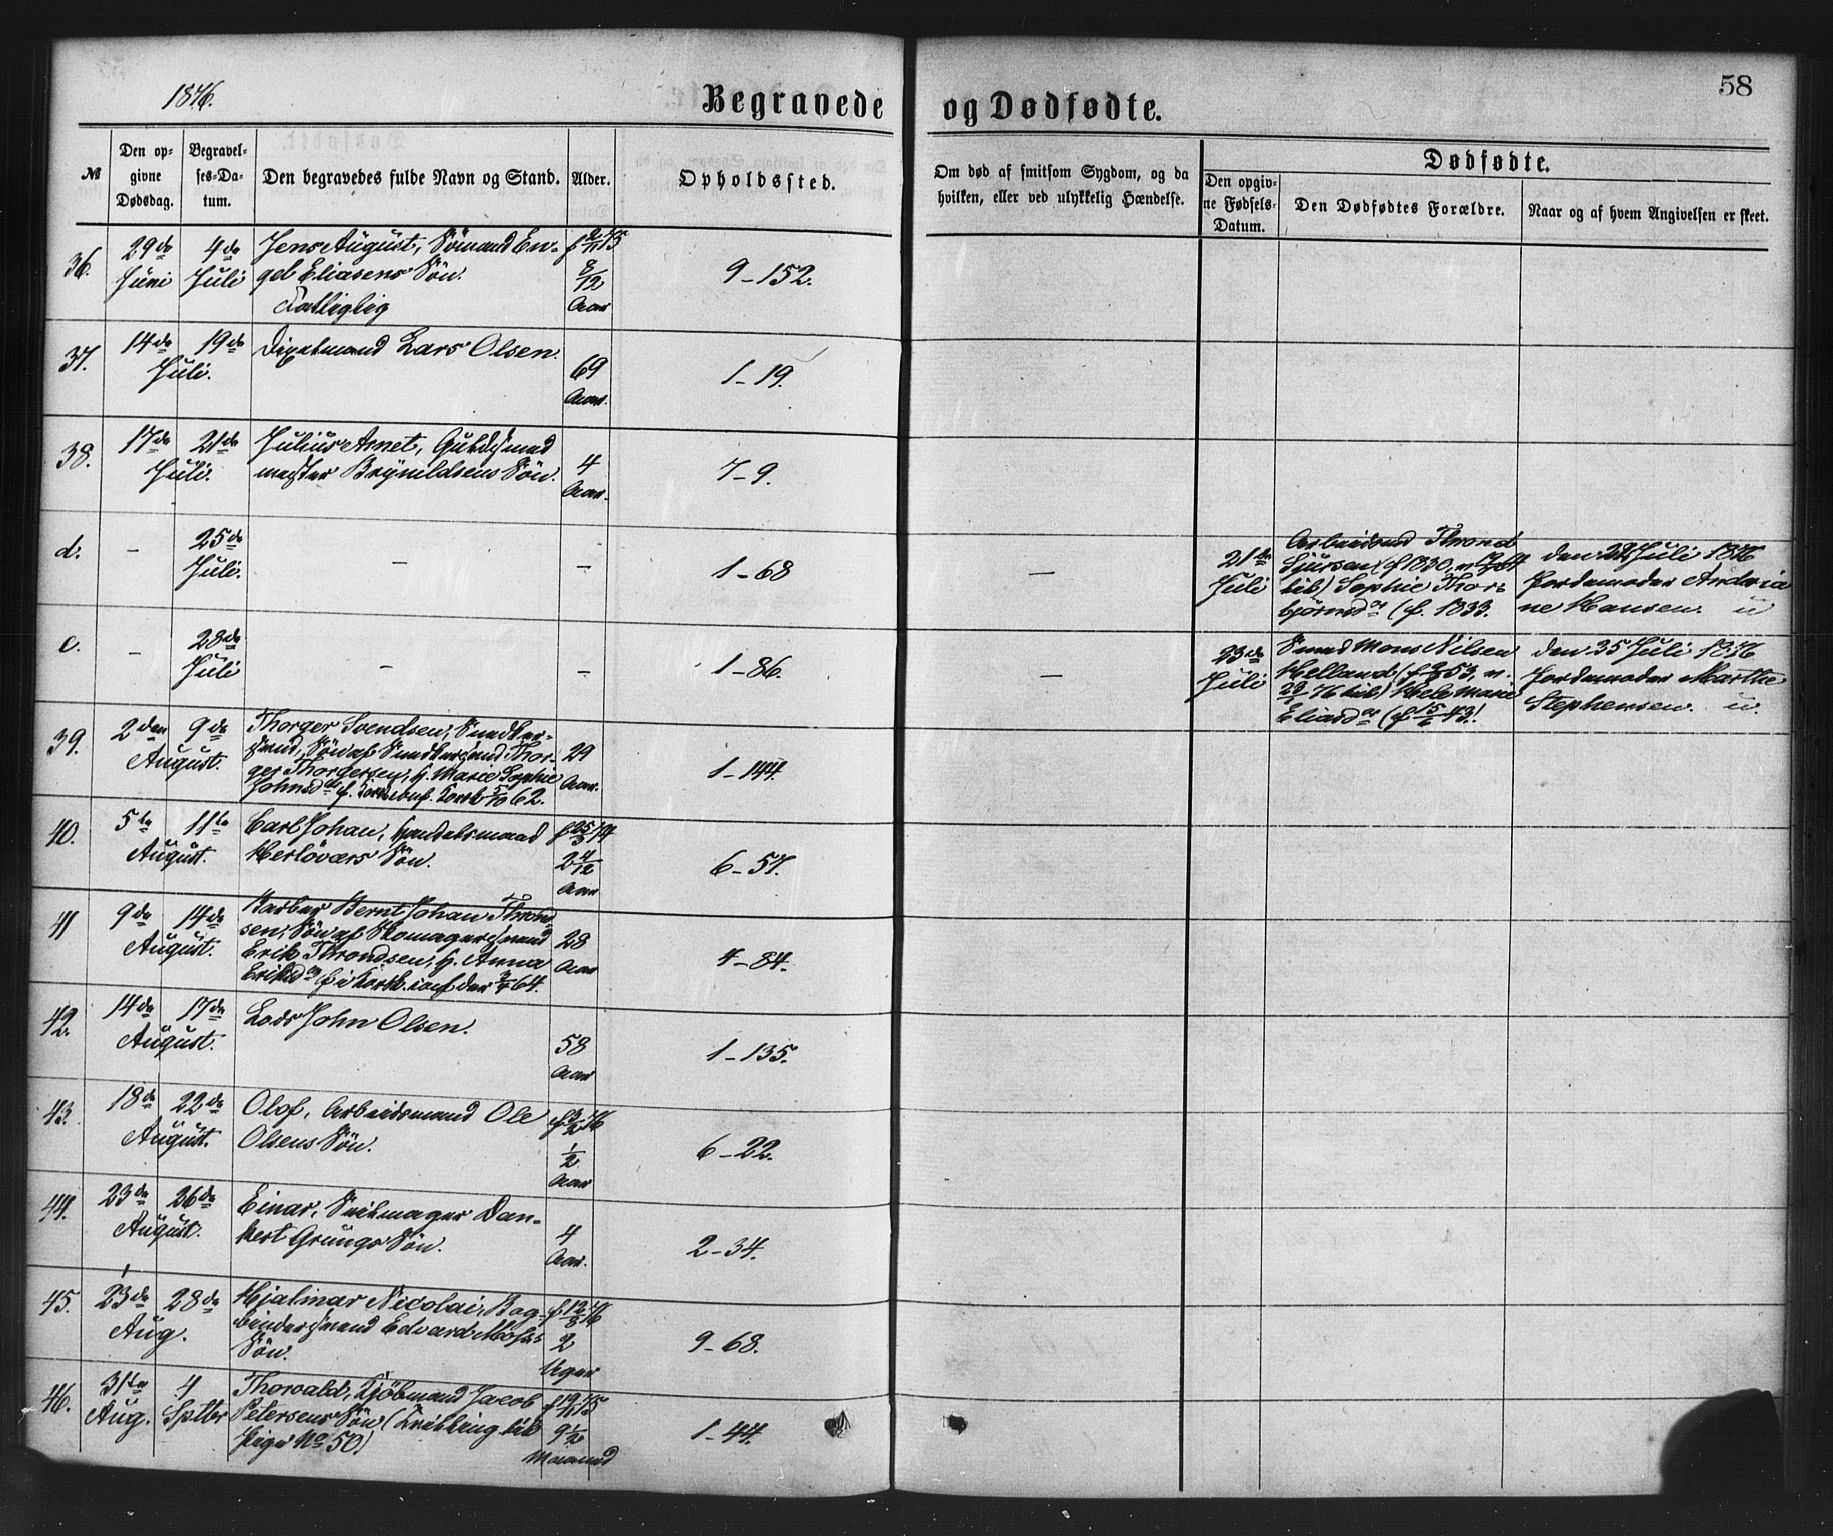 1876.
Begravede og Dødfødte.
58
№
Den opgivne Dødsdag.
Begravelses-Datum.
Den begravedes fulde Navn og Stand.
Alder.
Opholdssted.
Om død af smitsom Sygdom, og da hvilken, eller ved ulykkelig Hændelse.
Dødfødte.
Den opgivne Fødsels-Datum.
Den Dødfødtes Forældre.
Naar og af hvem Angivelsen er skeet.
36.
29de Juni
4de Juli
Jens August, Sømand En-
gel Eliasens Søn.
Fattiglig
8/12
Aar
9-152.
37.
14de
19de
Juli.
Lars Olsen.
69
Aar.
1-19.
38.
17de
21de
Juli.
Julius Arnet, Guldsmed
mester Brynildsens Søn.
4
Aar.
7-9.
d.
-
25de
Juli.
-
-
1-68
-
21de
Juli
Arbeidsmd Thrond
Sjursen (f 1830,
Sophie Thor-
bjørnsd (f. 1833.
den 22 Juli 1876
Jordemoder Andria
ne Hansen. u
e.
-
28de
Juli
-
-
1-86.
-
23de
Juli
Smed Mons Nilsen
Helland
76 Marie
Eliasd (f 15/6 43!
den 25 Juli 1876
Jordemoder Marthe
Stephensen. u.
39.
2den
9de
August.
Thorger Svendsen, Snedker-
svend, Søn af Snedkersvend Thor-
ger Thorgersen, h. Marie Sophie
Johnsd 62.
29
Aar.
1-144.
40.
5te
11te
August.
Carl Johan, Handelsmand
Herløvers Søn.
f 25/3 74
2 4/12
Aar
6-57.
41
9de
14de
August.
Barber Bernt Johan Thrond-
sen, Søn af Skomagersvend
Erik Throndsen, h. Anna
Eriksd 64.
28
Aar
4-84.
42.
14de
17de
August.
Lods John Olsen.
58
Aar
1-135.
43.
18de
22de
August.
Olof, Arbeidsmand Ole
Olsens Søn.
f 3/2 76
1/2
Aar
6-22.
44.
23de
26de
August.
Einar, Seilmager Dan-
kert Grungs Søn.
4
Aar.
2-34.
45.
23de
28de
Aug.
Hjalmar Nicolai, Bog-
bindersvend Edvard
Søn.
f 12/8 76
2
Uger
9-68.
46.
31te
Aug.
4
Sptbr
Thorvald, Kjøbmand Jacob
Petersens Søn (Tvilling til
Pige No 50)
f 19/11 75
9 1/2
Maaned
1-44.